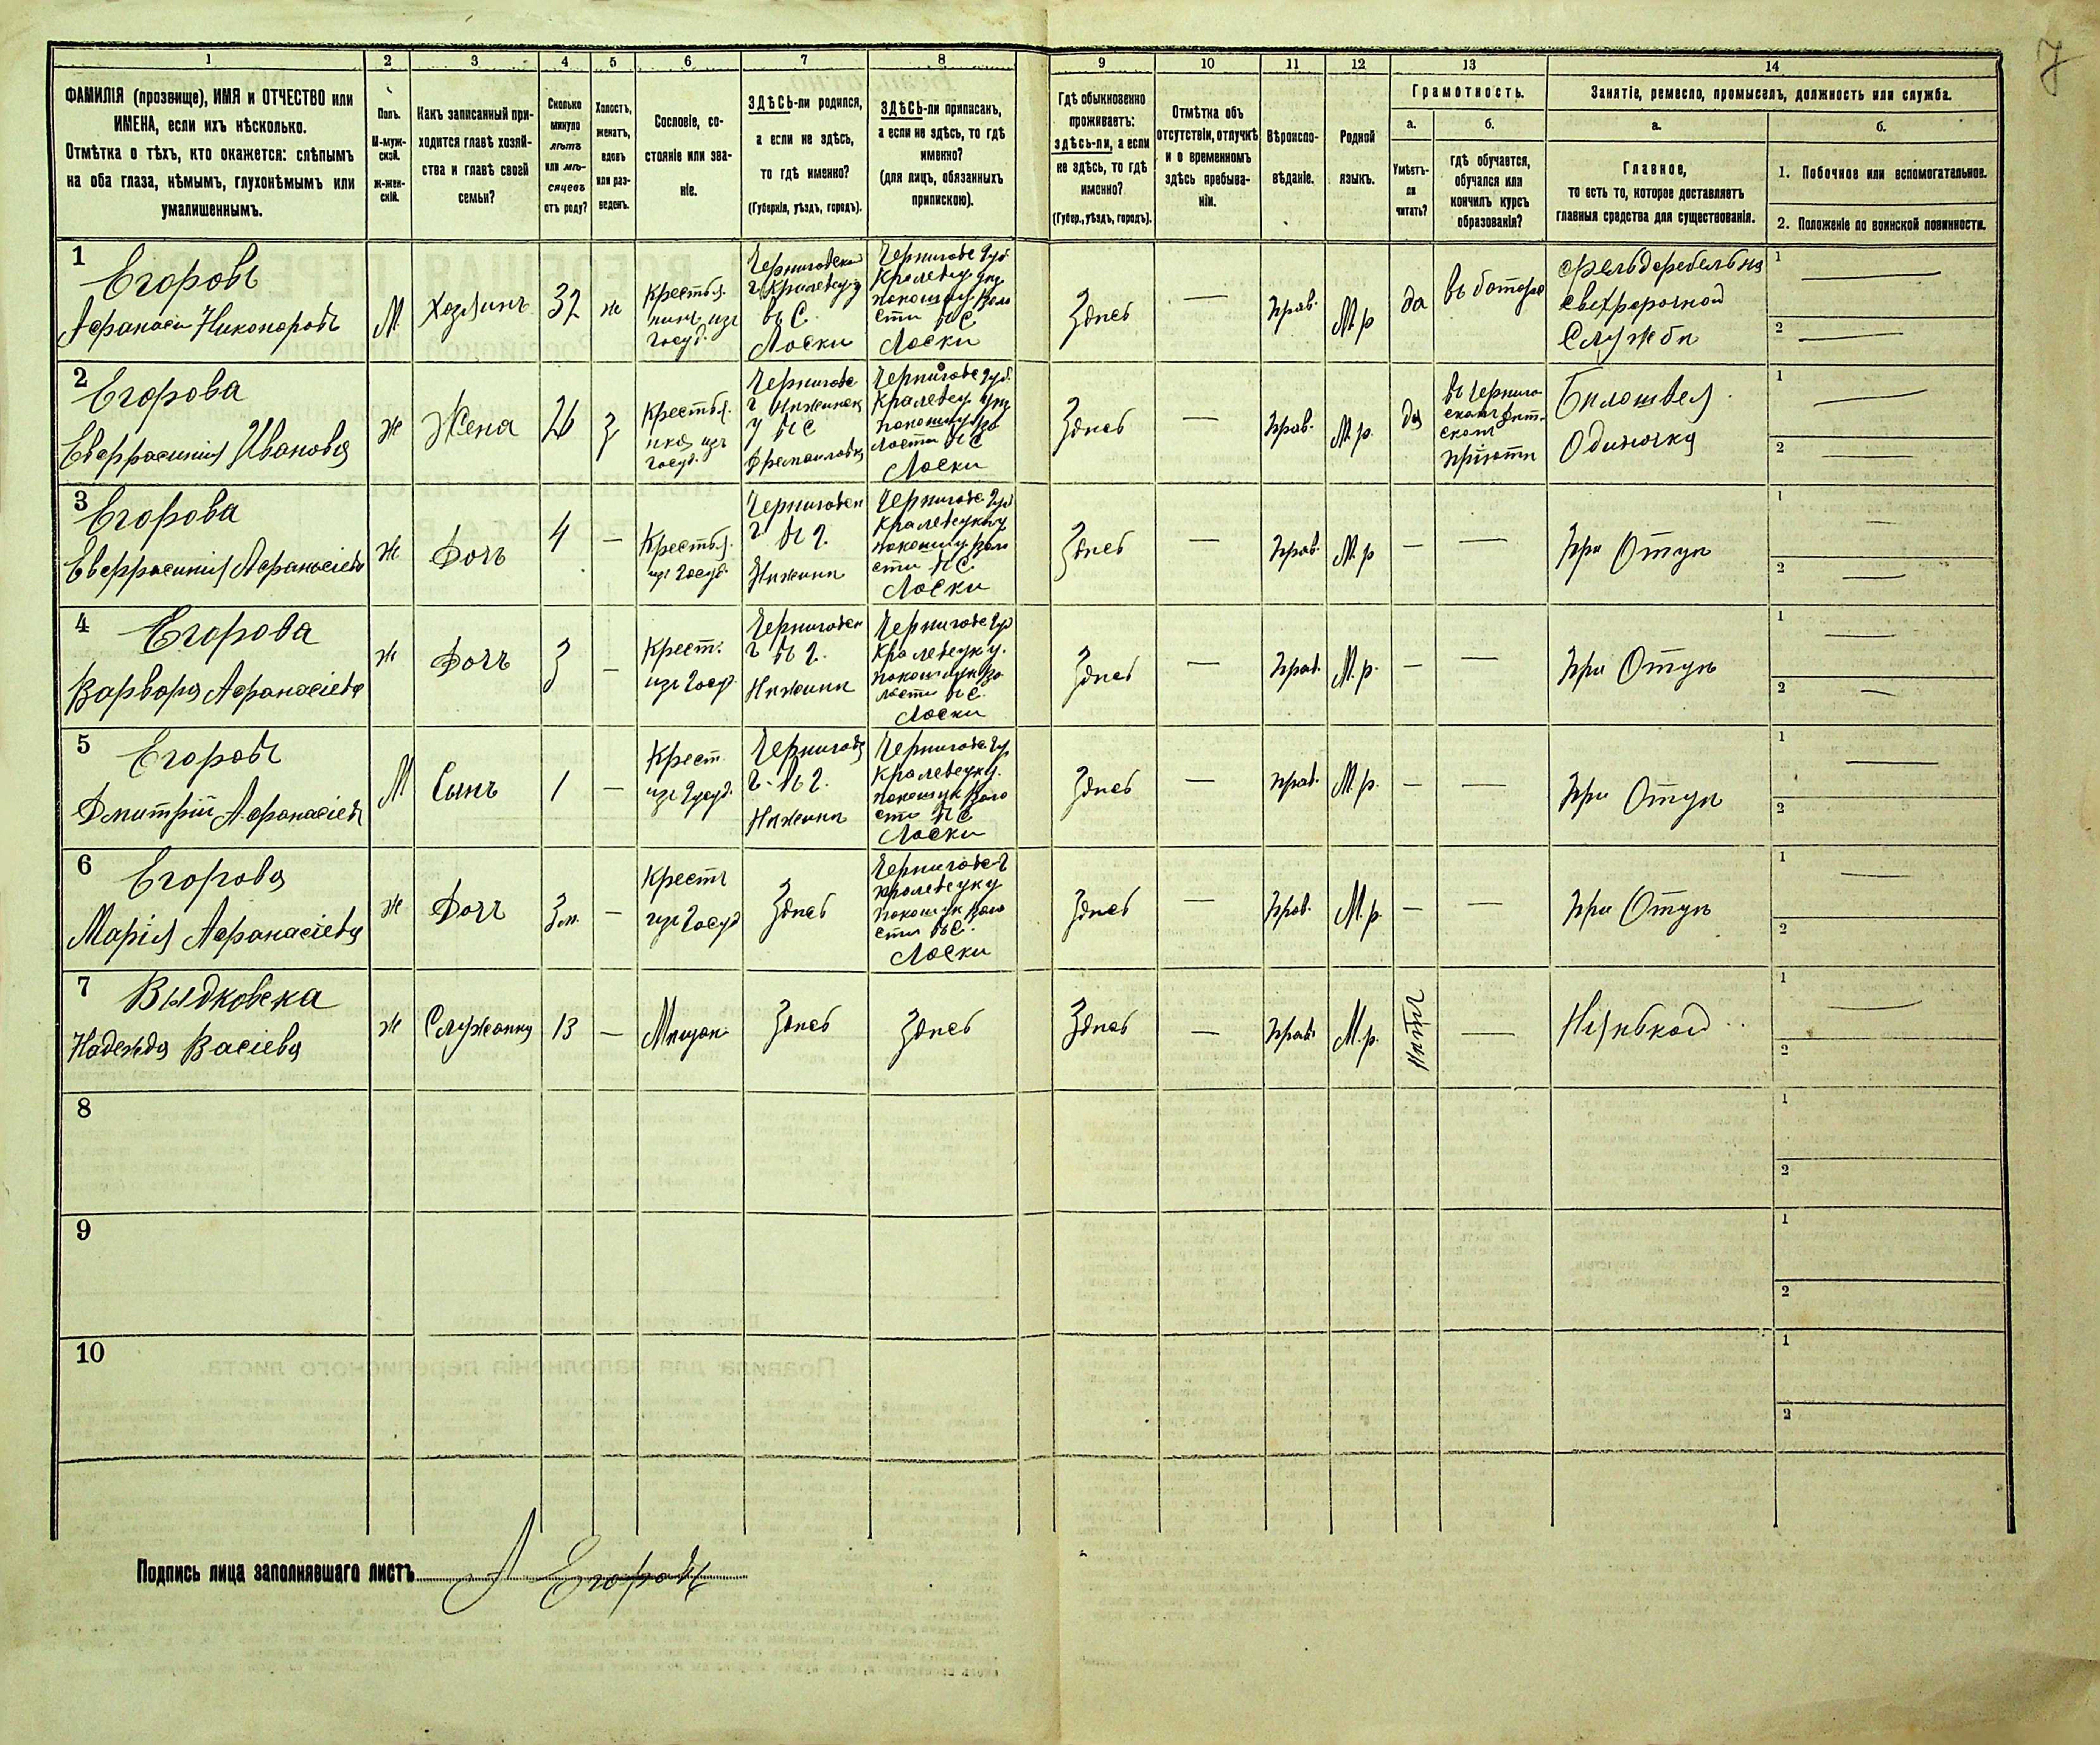 7
1 2 3 4 5 6 7 8 9 10 11 12 13 14
ФАМИЛІЯ (прозвище), ИМЯ и ОТЧЕСТВО или
ИМЕНА, если ихъ нѣсколько.
Отмѣтка о тѣхъ, кто окажется: слѣпымъ
на оба глаза, нѣмымъ, глухонѣмымъ или
умалишеннымъ.
Полъ.
М-муж-
ской.
Ж-жен-
скій.
Какъ записанный при-
ходится главѣ хозяй-
ства и главѣ своей
семьи?
Сколько
минуло
лѣтъ
или мѣ-
сяцевъ
отъ роду?
Холостъ,
женатъ,
вдовъ
или раз-
веденъ.
Сословіе, со-
стояніе или зва-
ніе.
ЗДѢСЬ-ли родился,
а если не здѣсь,
то гдѣ именно?
(Губернія, уѣздъ, городъ).
ЗДѢСЬ-ли приписанъ,
а если не здѣсь, то гдѣ
именно?
(для лицъ, обязанныхъ
припискою).
Гдѣ обыкновенно
проживаетъ:
здѣсь-ли, а если
не здѣсь, то гдѣ
именно?
(Губер., уѣздъ, городъ).
Отмѣтка объ
отсутствіи, отлучкѣ
и о временномъ
здѣсь пребыва-
ніи.
Вѣроиспо-
вѣданіе.
Родной
языкъ.
Грамотность.
а.
Умѣетъ-
ли
читать?
б.
гдѣ обучается,
обучался или
кончилъ курсъ
образованія?
Занятіе, ремесло, промыселъ, должность или служба.
а.
Главное,
то есть то, которое доставляетъ
главныя средства для существованія.
б.
1. Побочное или вспомогательное.
2. Положеніе по воинской повинности.
1
Егоровъ
Афанасій Никоноровъ
М
Хозяинъ
32
ж
Крестья-
нинъ изъ
госуд.
въ С.
Лоски
Черниговс Губ
Лоски
Здѣсь
—
Прав.
М.р
да
Службы
1 —
2 —
2
Егорова
Евфросинія Иванова
ж
Жена
26
з
Крестья-
нка изъ
госуд.
Черниговс
Черниговс Губ.
Лоски
Здѣсь
—
Прав.
М.р.
да
пріютѣ
Бѣлошвея
Одиночка
1 —
2 —
3
Егорова
Евфросинія Афанасіева
ж
Дочь
4
—
Крестья.
изъ Госуд.
Нѣжинѣ
Черниговс Губ
сти въ С.
Лоски
Здѣсь
—
Прав.
М.р
—
—
При Отцѣ
1 —
2 —
4
Егорова
Варвара Афанасіева
ж
Дочь
3
—
Крест.
изъ Госуд.
Нѣжинѣ
Черниговс Губ
Лоски
Здѣсь
—
Прав.
М.р.
—
—
При Отцѣ
1 —
2 —
5
Егоровъ
Дмитрій Афанасіевъ
М
Сынъ
1
—
Крест
изъ Госуд.
Нѣжинѣ
сти въ С
Лоски
Здѣсь
—
Прав.
М.р.
—
—
При Отцѣ
1 —
2
6
Егорова
Марія Афанасіева
ж
Дочь
3 м.
—
Крестъ
изъ Госуд
Здѣсь
сти въ С.
Лоски
Здѣсь
—
Прав.
М.р.
—
—
При Отцѣ
1 —
2
7
Выдковска
Надежда Васіева
ж
Служанка
13
—
Мѣщан.
Здѣсь
Здѣсь
Здѣсь
—
Прав.
М.р.
нѣтъ
—
Нянькой
1 —
2
8
1
2
9
1
2
10
1
2
Подпись лица заполнявшаго листъ А Егоровъ